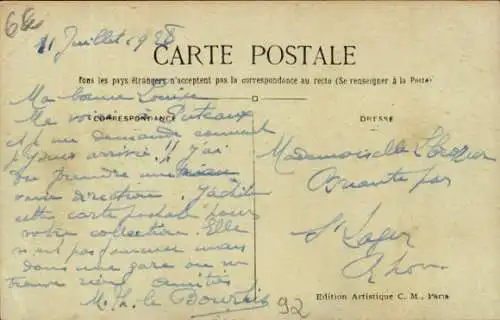 68
11 Juillet 1928
CARTE POSTALE
Tous les pays étrangers n'acceptent pas la correspondance au recto (Se renseigner à la Poste)
CORRESPONDANCE
Ma bonne Louise
Me voici à Puteaux
et je me demande comment
j'y suis arrivée !! j'ai
dû prendre une
direction. J'achète
cette carte postale pour
votre collection. Elle
n'est pas fameuse mais
dans une gare on ne
trouve rien. Amitiés
M. Th. le
92
ADRESSE
Mademoiselle
par
St Lager
Rhône
Edition Artistique C. M., Paris